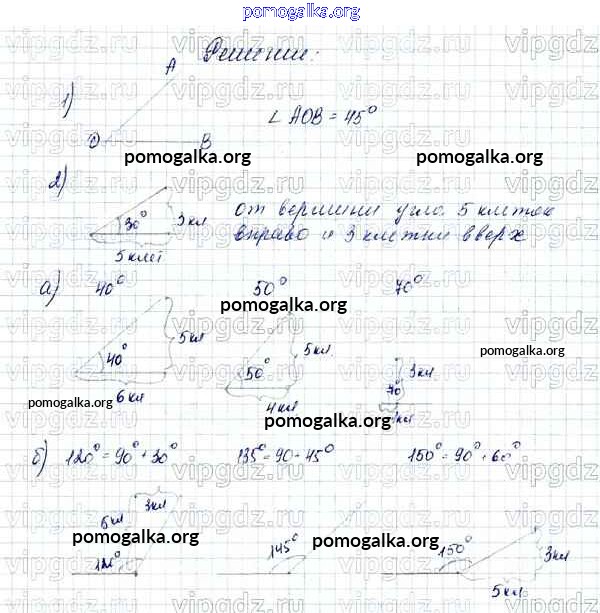 pomogalka.org
Решение:
1)
A
O
B
∠ AOB = 45°
pomogalka.org pomogalka.org
2)
30°
3 кл
5 клет
от вершины угла 5 клеток
вправо и 3 клетки вверх
а) 40° 50° 70°
pomogalka.org
40°
5 кл
6 кл
50°
5 кл
4 кл
70°
3 кл
1 кл
pomogalka.org
pomogalka.org
pomogalka.org
б) 120° = 90° + 30° 135° = 90 + 45° 150° = 90° + 60°
3 кл
5 кл
pomogalka.org pomogalka.org
120°
145°
150°
3 кл
5 кл
vipgdz.ru